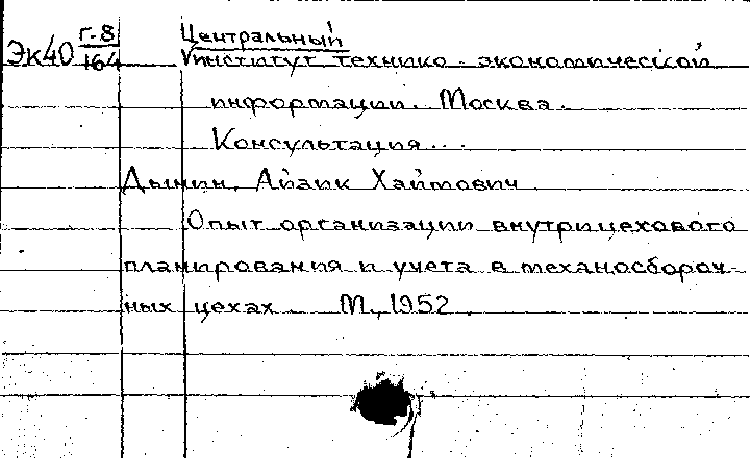 Эк40 г.8/164 Центральный
институт технико-экономической
информации. Москва.
Консультация...
Дымин, Айзик Хаимович.
Опыт организации внутрицехового
планирования и учета в механосбороч-
ных цехах. М., 1952